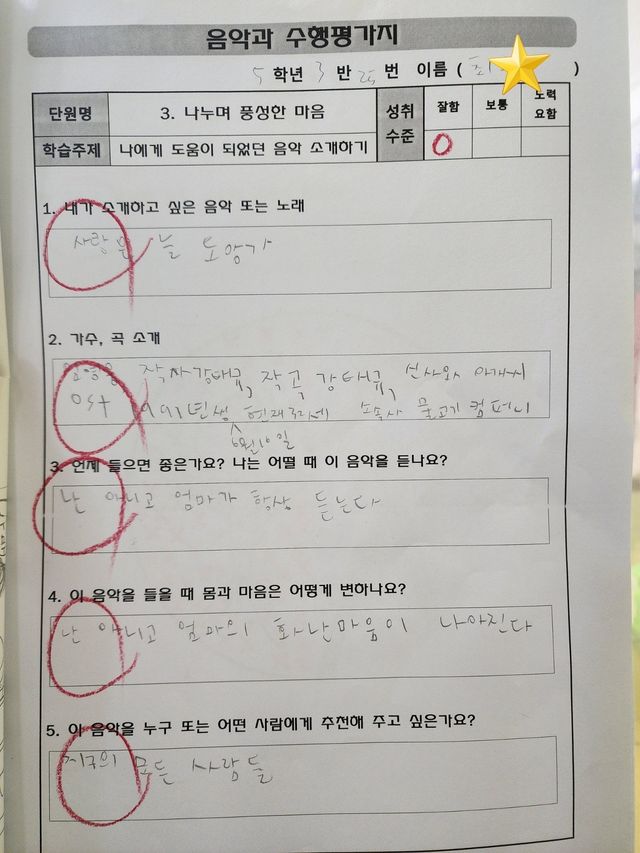 음악과 수행평가지
5 학년 3 반 25 번 이름 ( 최 )
단원명 3. 나누며 풍성한 마음 성취 수준 잘함 보통 노력 요함
학습주제 나에게 도움이 되었던 음악 소개하기 O
1. 내가 소개하고 싶은 음악 또는 노래
사랑은 늘 도망가
2. 가수, 곡 소개
임영웅 작사 강태규, 작곡 강태규, 신사와 아가씨
OST 1991년생 현재 소속사 물고기 컴퍼니
6월 16일
3. 언제 들으면 좋은가요? 나는 어떨 때 이 음악을 듣나요?
난 아니고 엄마가 항상 듣는다
4. 이 음악을 들을 때 몸과 마음은 어떻게 변하나요?
난 아니고 엄마의 화난마음이 나아진다
5. 이 음악을 누구 또는 어떤 사람에게 추천해 주고 싶은가요?
지구의 모든 사람들